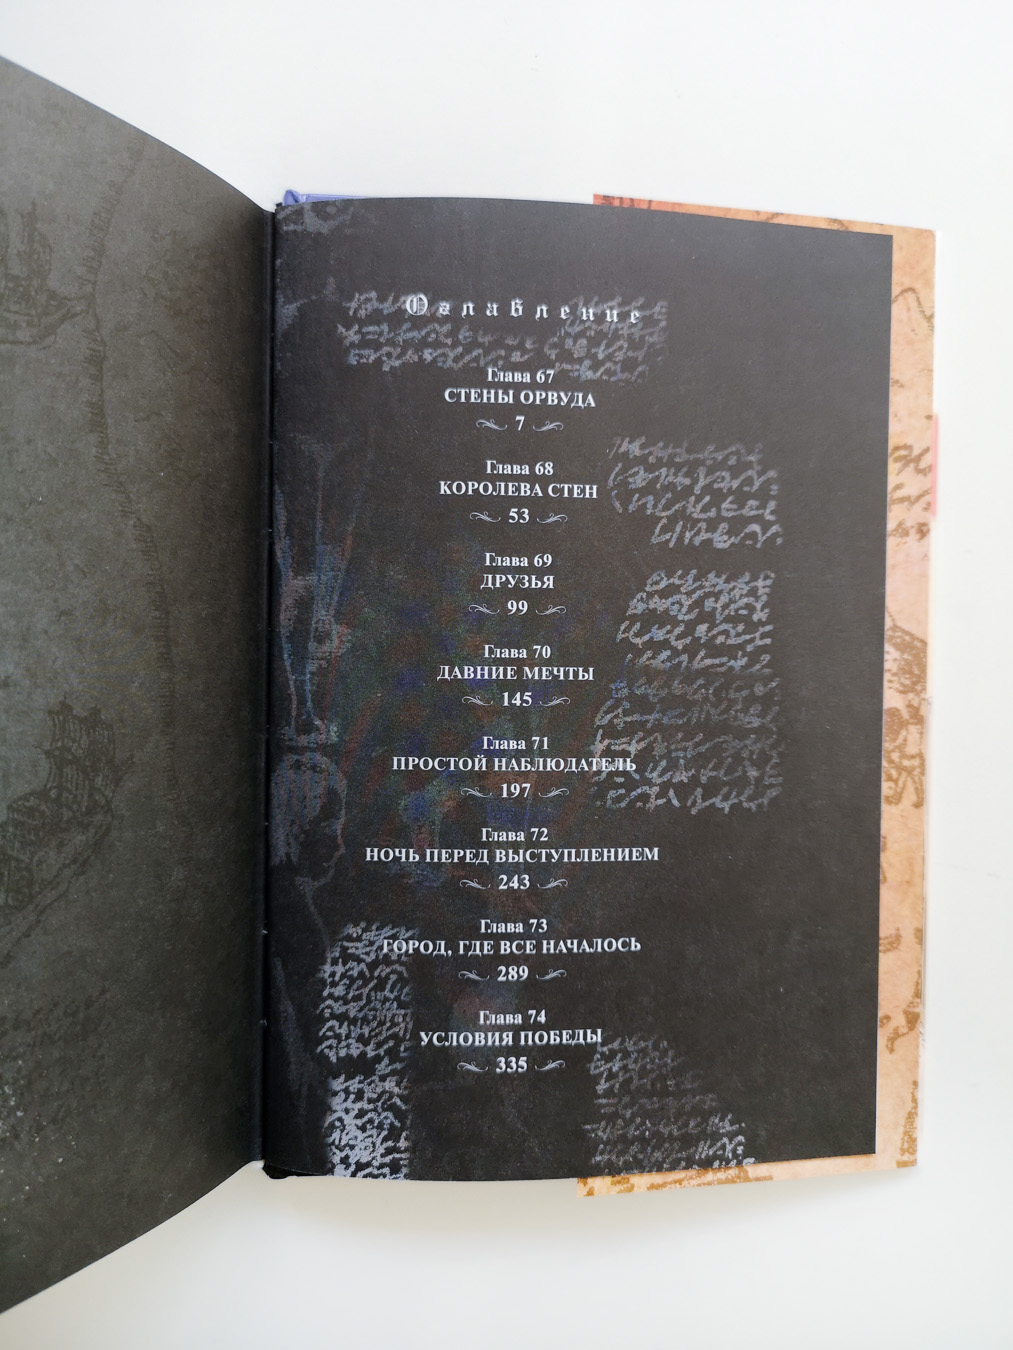 Оглавление
Глава 67
СТЕНЫ ОРВУДА
7
Глава 68
КОРОЛЕВА СТЕН
53
Глава 69
ДРУЗЬЯ
99
Глава 70
ДАВНИЕ МЕЧТЫ
145
Глава 71
ПРОСТОЙ НАБЛЮДАТЕЛЬ
197
Глава 72
НОЧЬ ПЕРЕД ВЫСТУПЛЕНИЕМ
243
Глава 73
ГОРОД, ГДЕ ВСЕ НАЧАЛОСЬ
289
Глава 74
УСЛОВИЯ ПОБЕДЫ
335